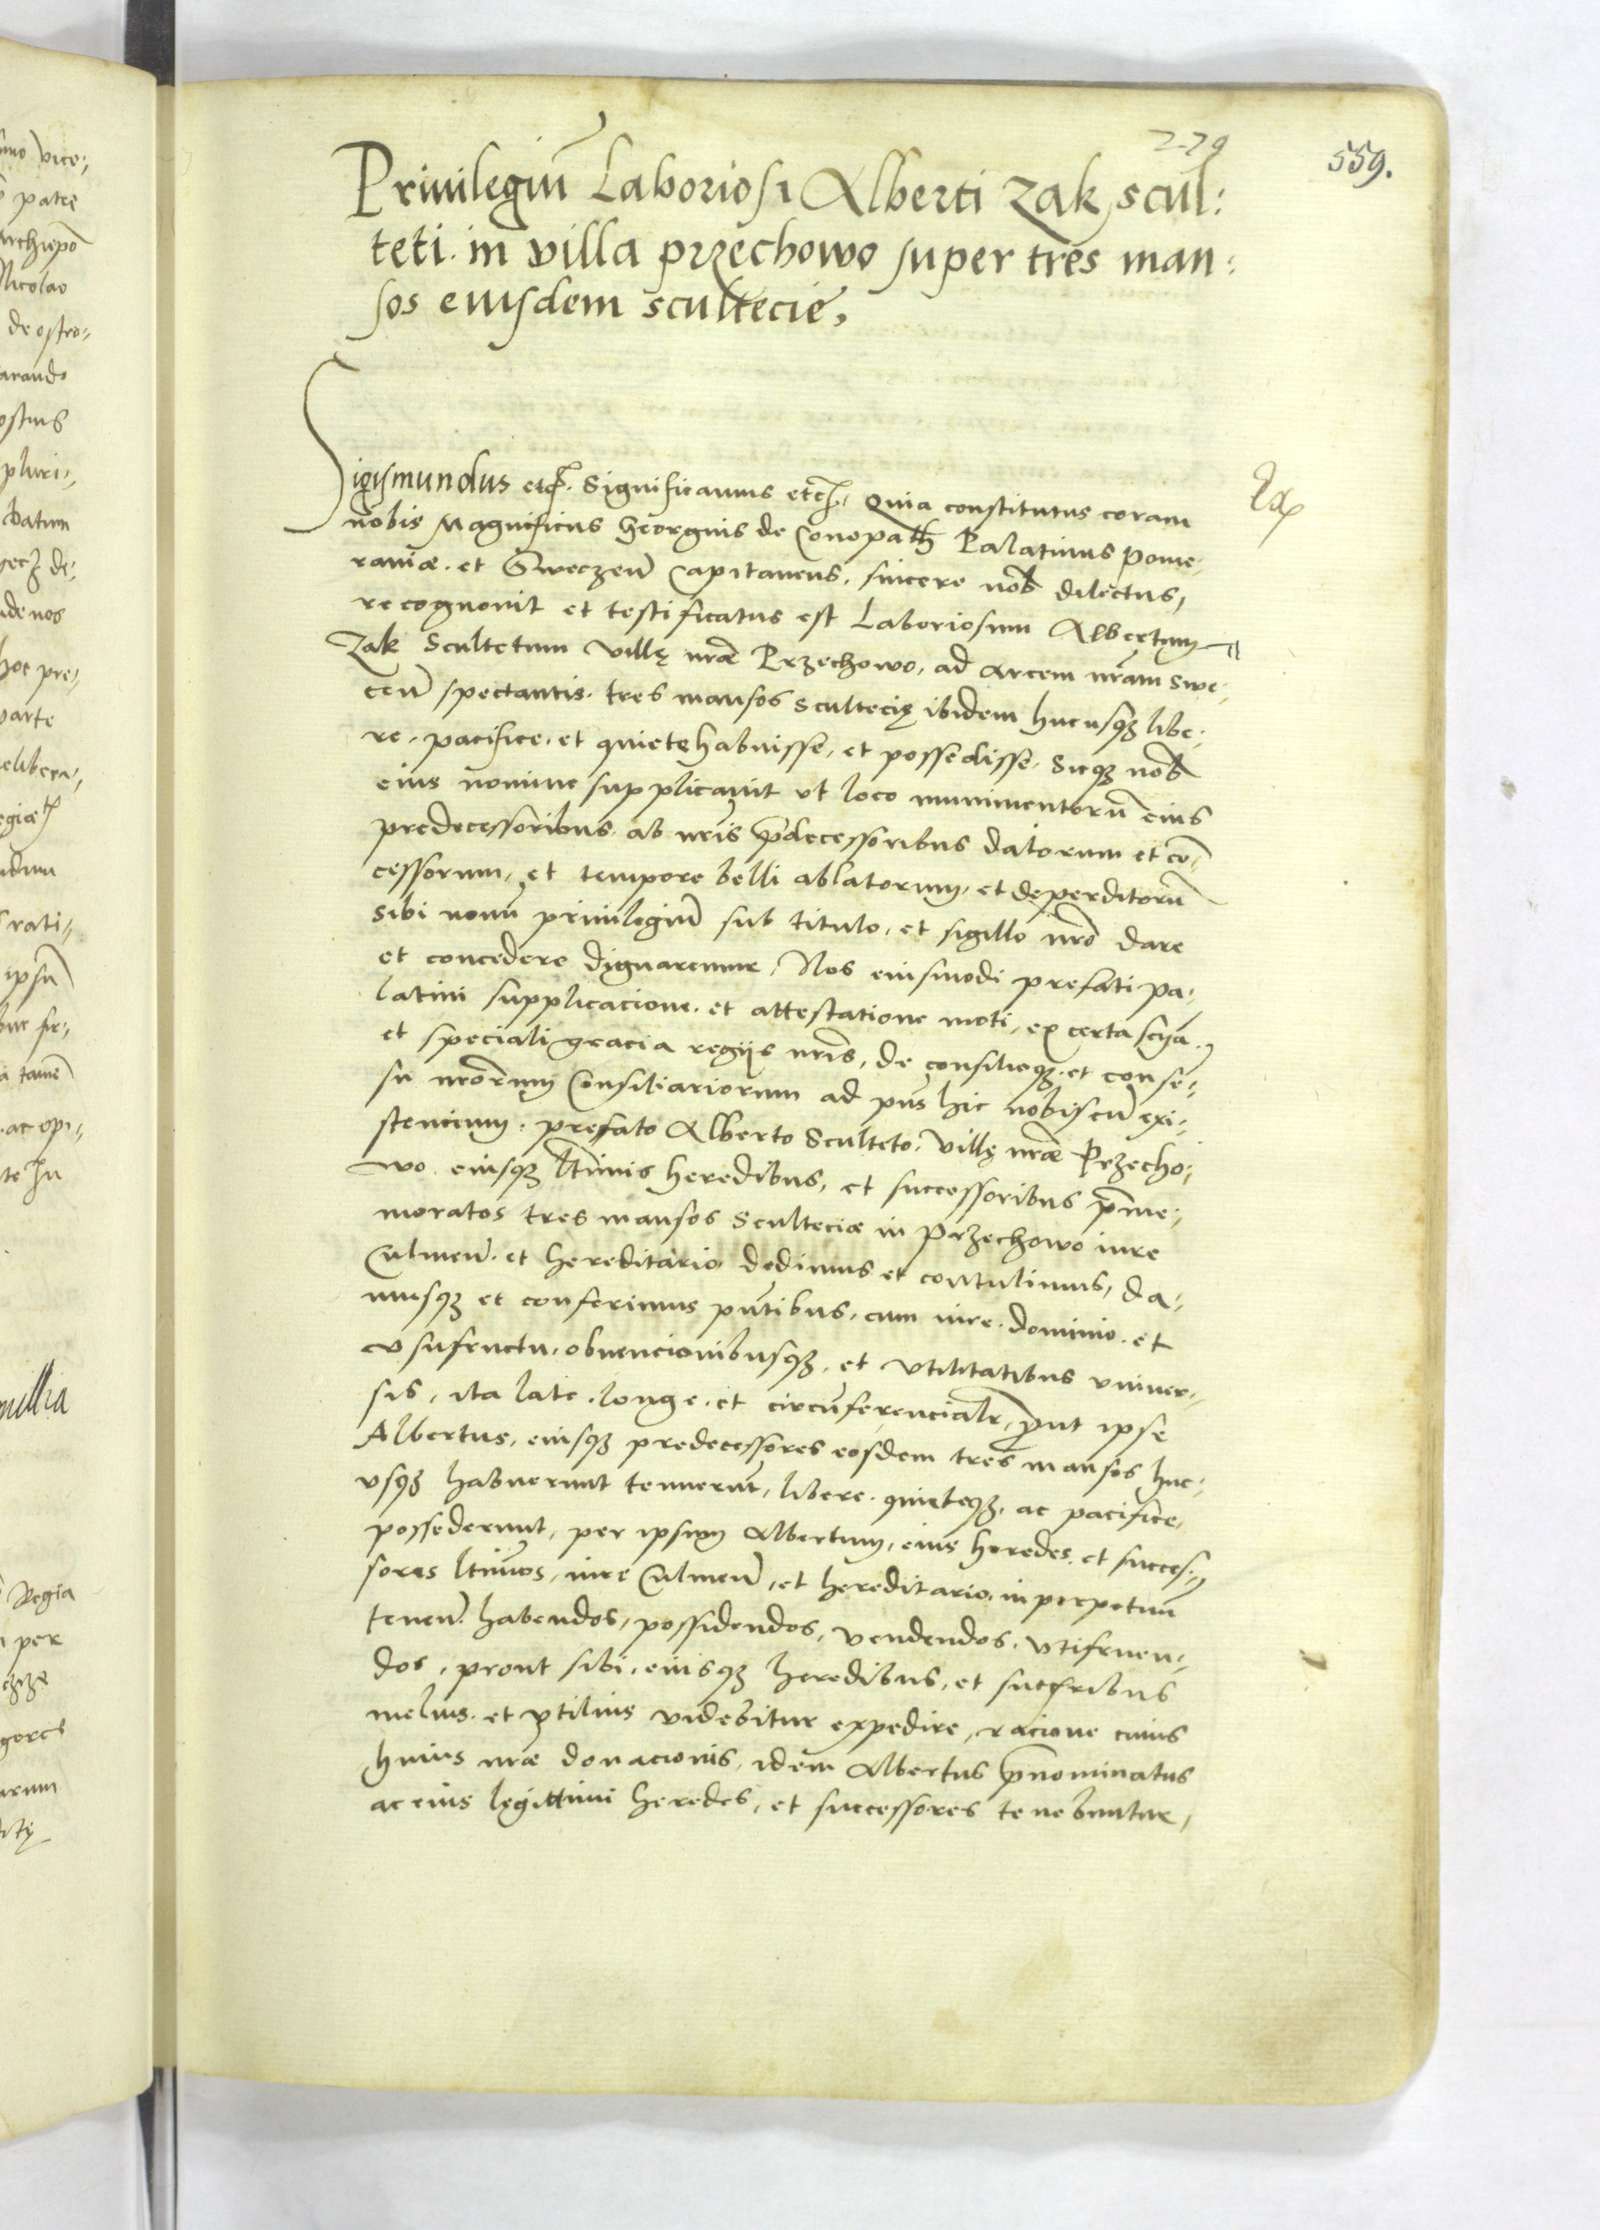 279
559.
Priuilegiũ Laboriosi Alberti Zak scul:
teti in villa przechowo super tres man:
sos eiusdem scultecie,
Sigismundus etc. Significamus etc. Quia constitutus coram
nobis Magnificus Georgius de Conopath Palatinus Pome:
raniæ et Sweczeñ Capitaneus, sincere nob dilectus,
recognouit et testificatus est Laboriosum Albertum
Zak Scultetum villę nræ Przechowo, ad arcem nram Swe:
ceñ spectantis tres mansos scultecię ibidem hucusq; libe:
re, pacifice, et quiete habuisse, et possedisse, Sicq; nob
eius nomine supplicauit vt loco munimentorũ eius
predecessoribus ab nris p̃decessoribus datorum et cõ:
cessorum, et tempore belli ablatorum, et deperditorũ
sibi nouũ priuilegiũ sub titulo, et sigillo nro dare
et concedere dignaremur, Nos eiusmodi prefati pa:
latini supplicacione et attestatione moti, ex certa scia
et speciali gracia regijs nris, de consilioq; et conse:
su nrorum Consiliariorum ad pñs hic nobiscũ exi:
stencium, prefato Alberto Sculteto villę nræ Przecho:
wo eiusq; ltimis heredibus, et successoribus p̃me:
moratos tres mansos scultecię in Przechowo iure
Culmeñ et hereditario dedimus et contulimus, da:
musq; et conferimus pñtibus, cum iure, dominio et
vsufructu, obuencionibusq; et vtilitatibus vniuer:
sis, ita late, longe, et circũferencialr, p̃ut ipse
Albertus, eiusq; predecessores eosdem tres mansos huc:
vsq; habuerunt tenuerũt, libere quieteq; ac pacifice
possederunt, per ipsum Albertum, eius heredes et succes:
sores ltimos, iure Culmeñ, et hereditario, in perpetuũ
teneñ habendos, possidendos, vendendos, vtifruen:
dos, prout sibi, eiusq; heredibus, et succribus
melius et vtilius videbitur expedire, racione cuius
huius nræ donacionis, idem Albertus p̃nominatus
ac eius legittimi heredes, et successores tenebuntur,